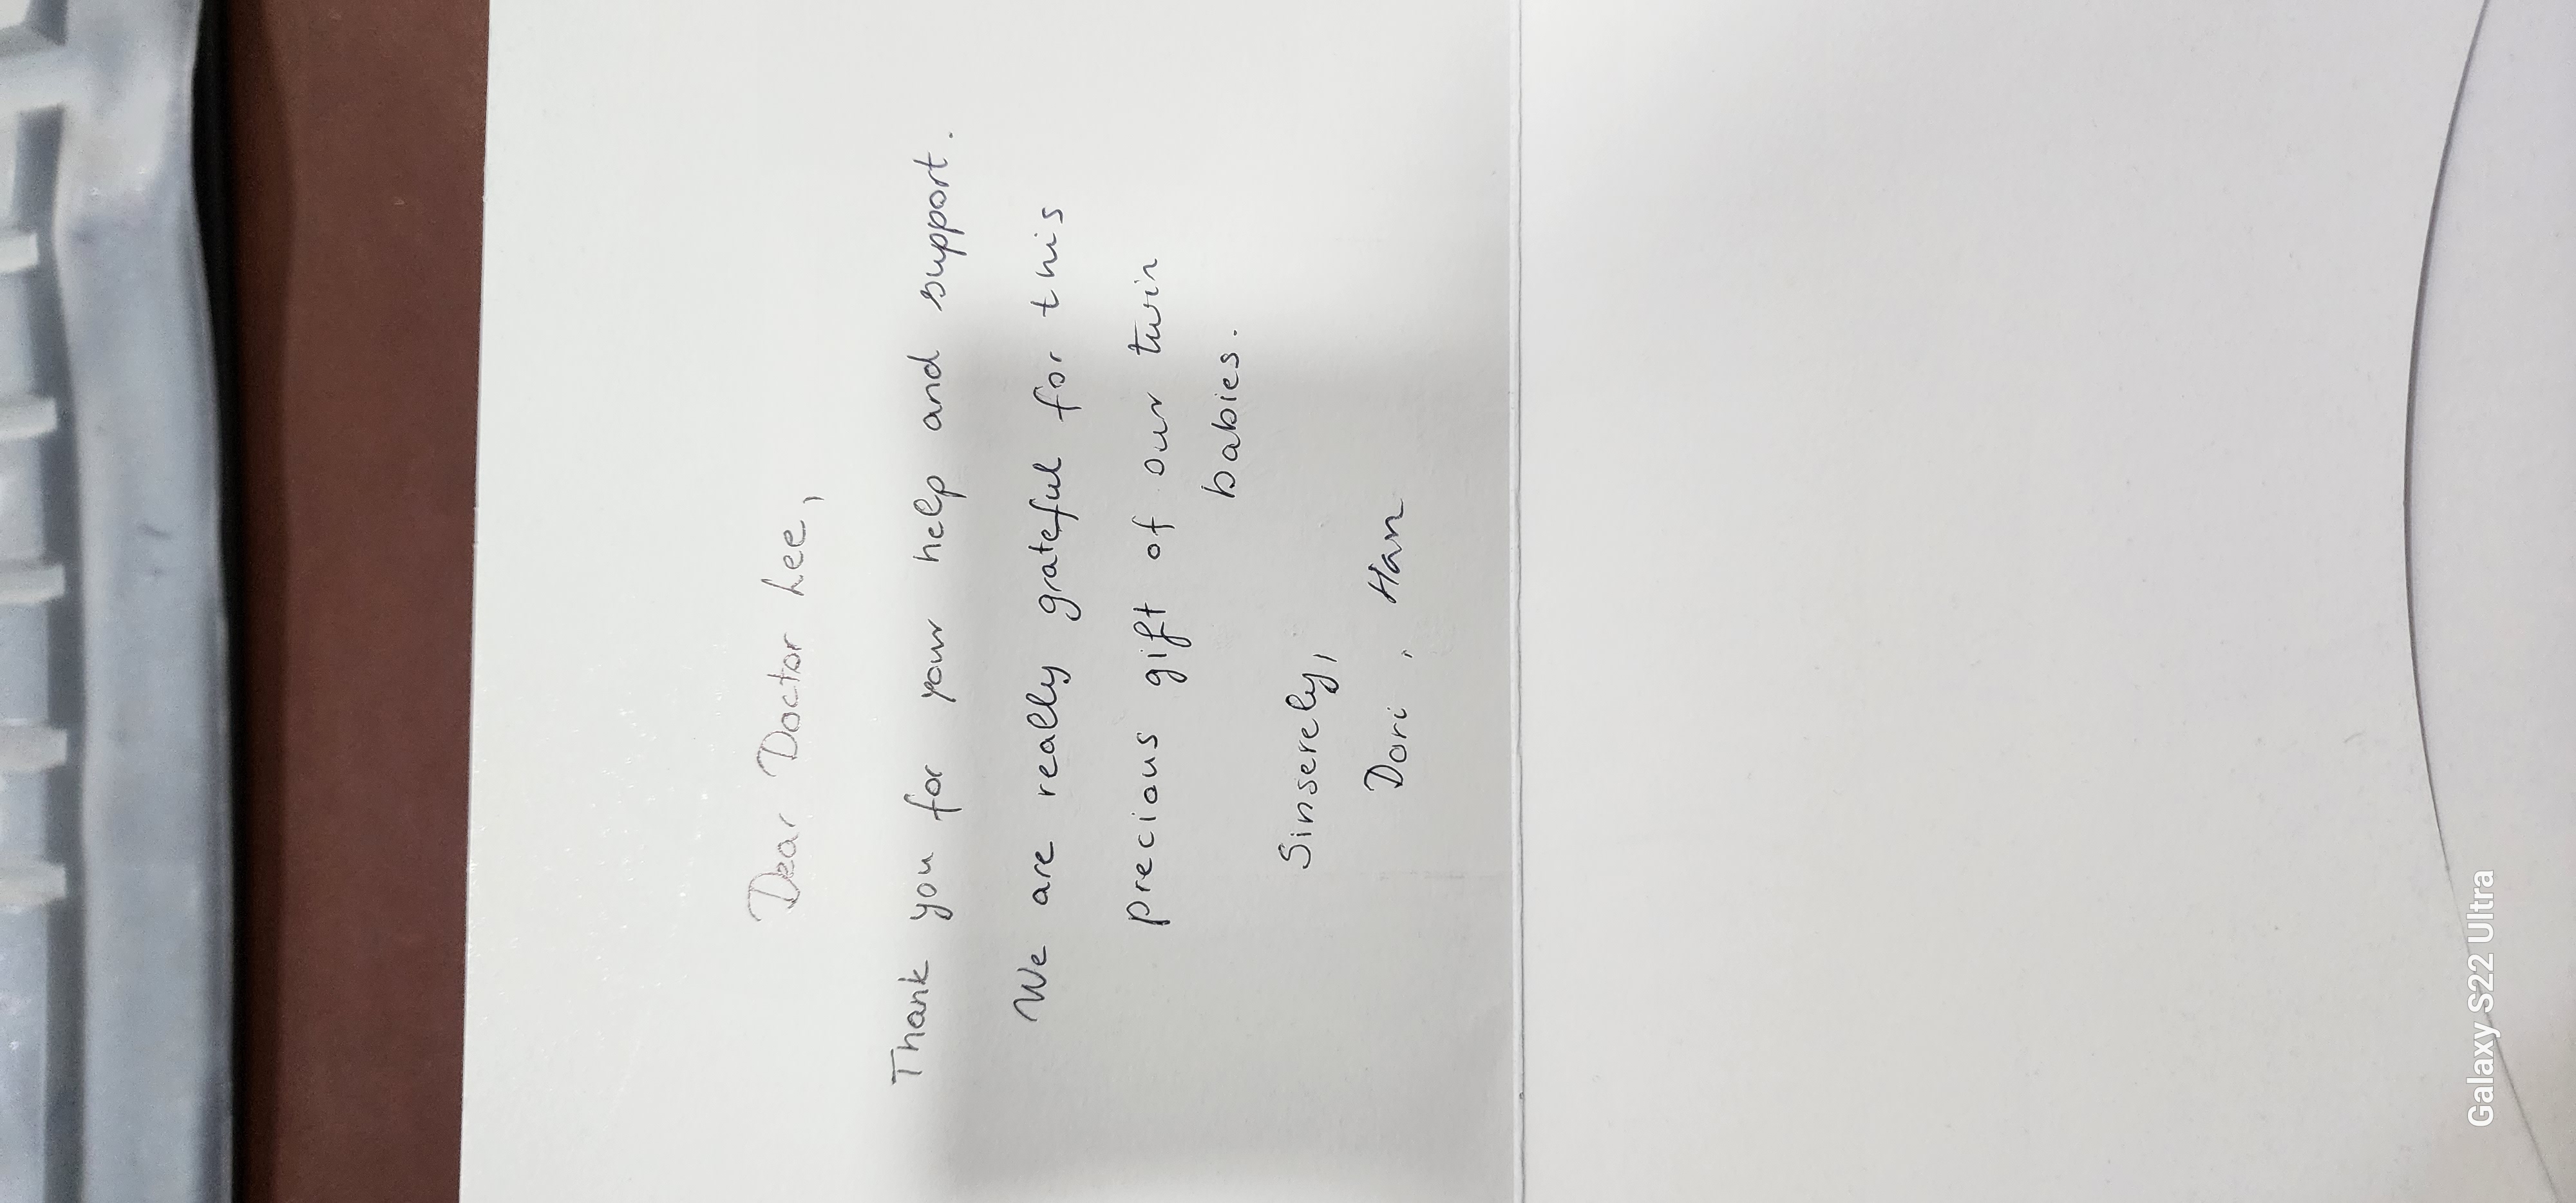 Dear Doctor Lee,
Thank you for your help and support.
We are really grateful for this
precious gift of our twin
babies.
Sinserely,
Dori, Han
Galaxy S22 Ultra